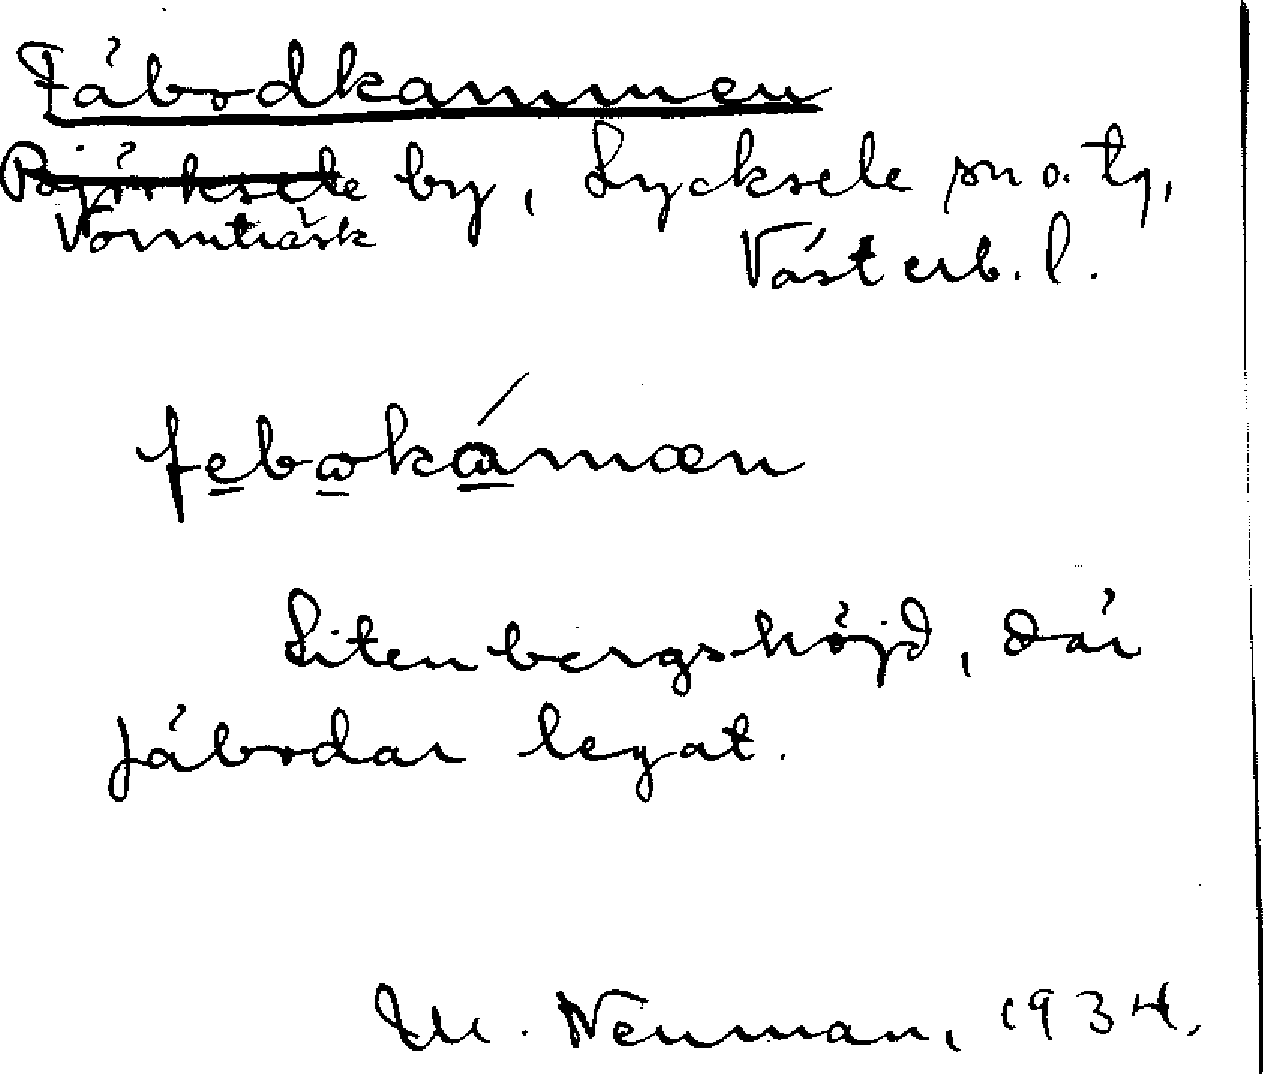 Fäbodkammen
Björksele by, Lycksele sn o. tg,
Vormträsk
Västerb. l.
febωkάmæn
Liten bergshöjd, där
fäbodar legat.
M. Neuman, 1934.